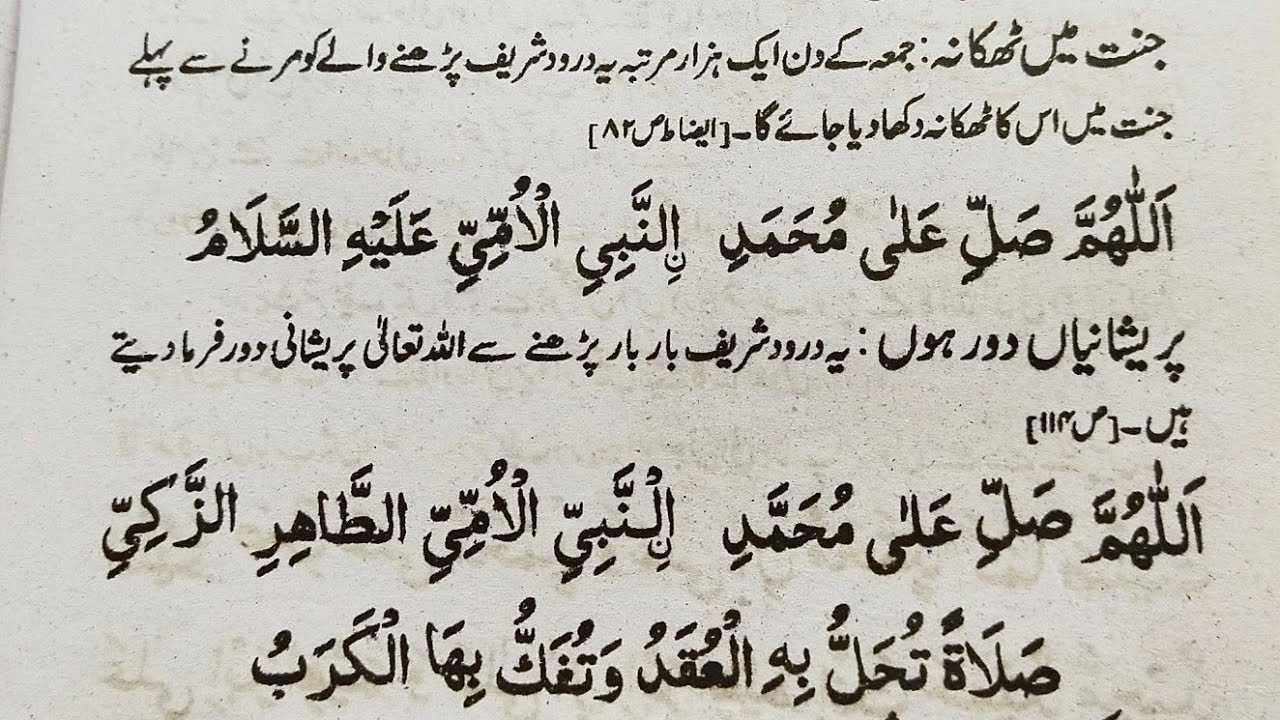 جنت میں ٹھکانہ: جمعہ کے دن ایک ہزار مرتبہ یہ درود شریف پڑھنے والے کو مرنے سے پہلے
جنت میں اس کا ٹھکانہ دکھا دیا جائے گا۔ [ایضا ط ص ۸۲]
اَللّٰهُمَّ صَلِّ عَلٰى مُحَمَدِ ﹰالنَّبِيِ الْاُمِّيِّ عَلَيْهِ السَّلَامُ
پریشانیاں دور ہوں: یہ درود شریف بار بار پڑھنے سے اللہ تعالیٰ پریشانی دور فرما دیتے
ہیں۔ [ص ۱۱۴]
اَللّٰهُمَّ صَلِّ عَلٰى مُحَمَّدِ نِالنَّبِيِّ الْاُمِّيِّ الطَّاهِرِ الزَّكِيِّ
صَلَاةً تُحَلُّ بِهِ الْعُقَدُ وَتُفَكُّ بِهَا الْكَرَبُ